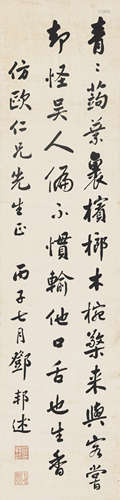 青〻蒟葉裹檳榔木椀擎来與客嘗
却怪吴人偏不慣輸他口舌也生香
仿歐仁兄先生正 丙子七月鄧邦述